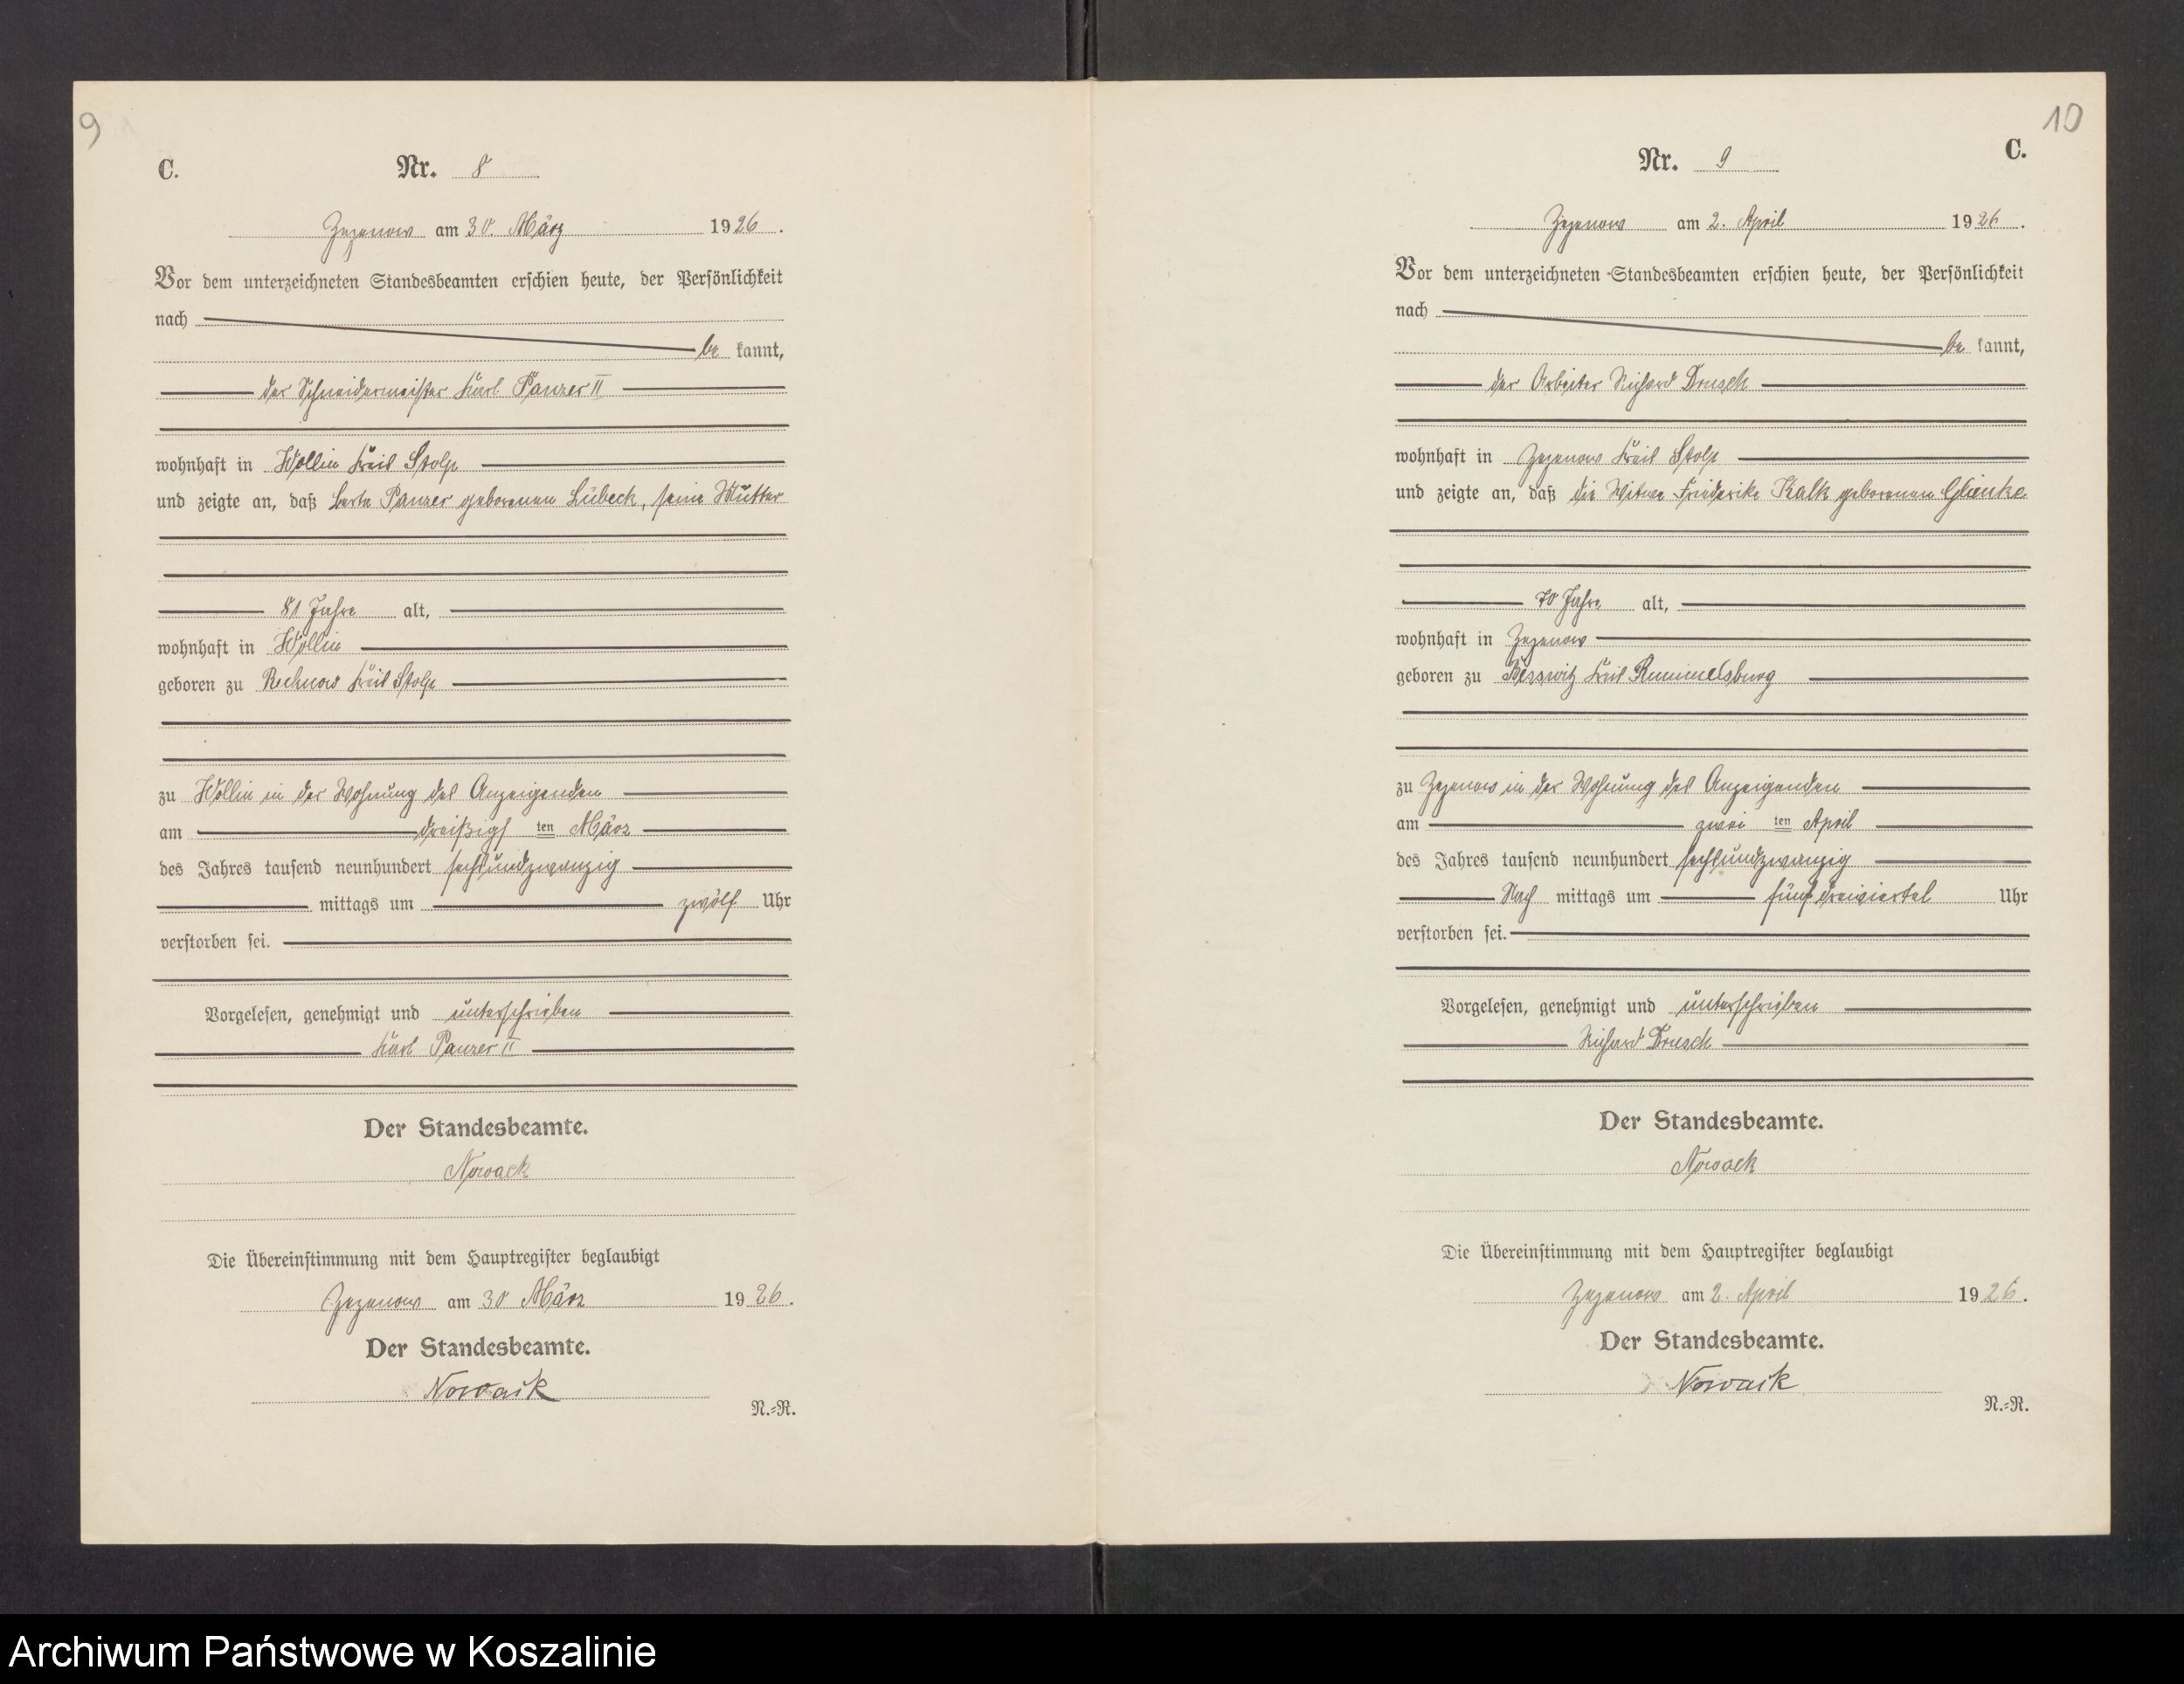 9
C.
Nr. 8
Zezenow am 30. März 1926.
Vor dem unterzeichneten Standesbeamten erschien heute, der Persönlichkeit
nach
be kannt,
der Schneidermeister Karl Panzer II
wohnhaft in Wollin Kreis Stolp
und zeigte an, daß Berta Panzer geborenen Lübeck, seine Mutter
81 Jahre alt,
wohnhaft in Wollin
geboren zu Rechnow Kreis Stolp
zu Wollin in der Wohnung des Anzeigenden
am dreißigs ten März
des Jahres tausend neunhundert sechsundzwanzig
mittags um zwölf Uhr
verstorben sei.
Vorgelesen, genehmigt und unterschrieben
Karl Panzer II
Der Standesbeamte.
Nowack
Die Übereinstimmung mit dem Hauptregister beglaubigt
Zezenow am 30 März 1926.
Der Standesbeamte.
Nowack
N.=R.
10
C.
Nr. 9
Zezenow am 2. April 1926.
Vor dem unterzeichneten Standesbeamten erschien heute, der Persönlichkeit
nach
be kannt,
der Arbeiter Richard Drusch
wohnhaft in Zezenow Kreis Stolp
und zeigte an, daß die Witwe Friederike Kalk geborenen Glanke
70 Jahre alt,
wohnhaft in Zezenow
geboren zu Besswitz Kreis Rummelsburg
zu Zezenow in der Wohnung des Anzeigenden
am zwei ten April
des Jahres tausend neunhundert sechsundzwanzig
Nach mittags um fünf dreiviertel Uhr
verstorben sei.
Vorgelesen, genehmigt und unterschrieben
Richard Drusch
Der Standesbeamte.
Nowack
Die Übereinstimmung mit dem Hauptregister beglaubigt
Zezenow am 2. April 1926.
Der Standesbeamte.
Nowack
N.=R.
Archiwum Państwowe w Koszalinie